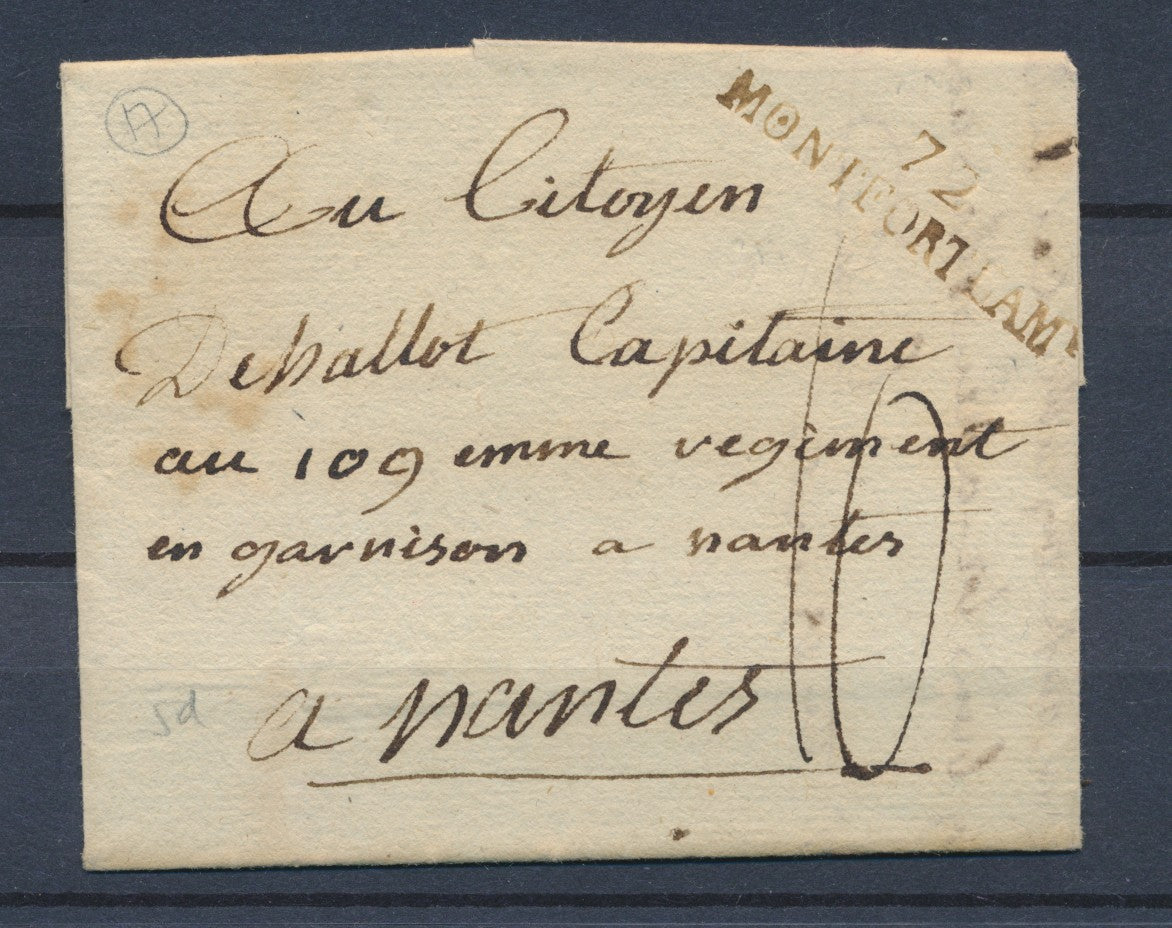 17
72
MONTFORT LAMY
Au Citoyen
Dehallot Capitaine
au 109 emme regiment
en garnison a nantes
a nantes
10
sd